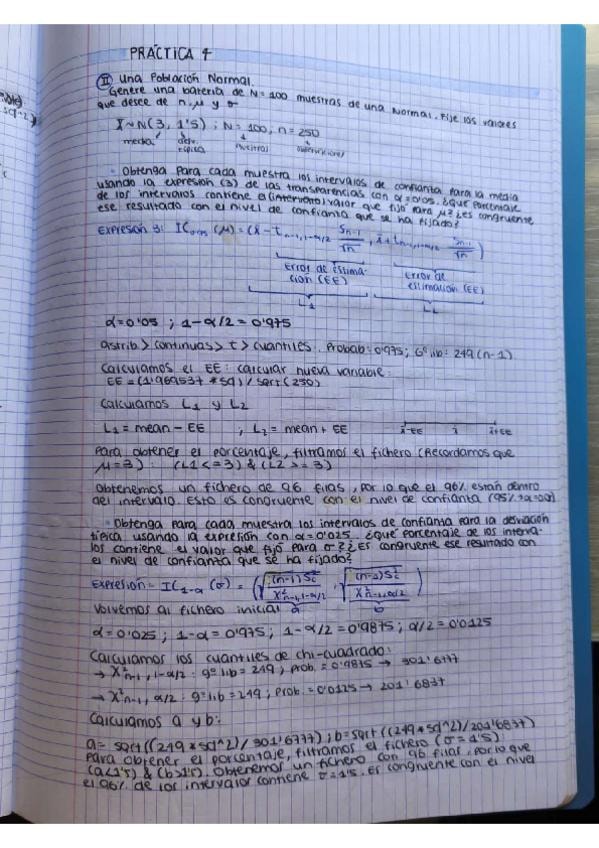 PRÁCTICA 4
II Una Población Normal.
Genere una batería de N=100 muestras de una Normal. Fije los valores
que desee de n, μ y σ
X~N(3, 1'5) ; N=100, n=250
media desv. típica muestras observaciones
· Obtenga para cada muestra los intervalos de confianza para la media
usando la expresión (3) de las transparencias con α=0'05. ¿Qué porcentaje
de los intervalos contiene el valor que fijó para μ? ¿Es congruente
ese resultado con el nivel de confianza que se ha fijado?
Expresión 3: IC (μ) = (x̄ - t n-1, 1-α/2 Sn-1/√n , x̄ + t n-1, 1-α/2 Sn-1/√n)
Error de estimación (EE) Error de estimación (EE)
L1 L2
α=0'05 ; 1-α/2 = 0'975
distrib > continuas > t > cuantiles. Probab: 0'975; Gº lib: 249 (n-1)
Calculamos el EE: calcular nueva variable:
EE = (1'969537 * sd) / sqrt(250)
Calculamos L1 y L2
L1 = mean - EE ; L2 = mean + EE x̄-EE x̄ x̄+EE
Para obtener el porcentaje, filtramos el fichero (Recordamos que
μ=3) : (L1 <= 3) & (L2 >= 3)
Obtenemos un fichero de 96 filas, por lo que el 96% están dentro
del intervalo. Esto es congruente con el nivel de confianza (95%
· Obtenga para cada muestra los intervalos de confianza para la desviación
típica usando la expresión con α=0'025. ¿Qué porcentaje de los interva-
los contiene el valor que fijó para σ? ¿Es congruente ese resultado con
el nivel de confianza que se ha fijado?
Expresión = IC 1-α (σ) = (√((n-1)S²c / X² n-1, 1-α/2) , √((n-1)S²c / X² n-1, α/2))
Volvemos al fichero inicial a b
α=0'025 ; 1-α = 0'975 ; 1-α/2 = 0'9875 ; α/2 = 0'0125
Calculamos los cuantiles de chi-cuadrado:
→ X² n-1, 1-α/2 : gº lib = 249 ; prob. = 0'9875 → 301'6777
→ X² n-1, α/2 : gº lib = 249 ; prob. = 0'0125 → 201'6837
Calculamos a y b:
a = sqrt((249*sd^2)/301'6777) ; b = sqrt((249*sd^2)/201'6837)
Para obtener el porcentaje, filtramos el fichero (σ = 1'5):
(a<1'5) & (b>1'5). Obtenemos un fichero con 96 filas, por lo que
el 96% de los intervalos contiene σ=1'5. Es congruente con el nivel